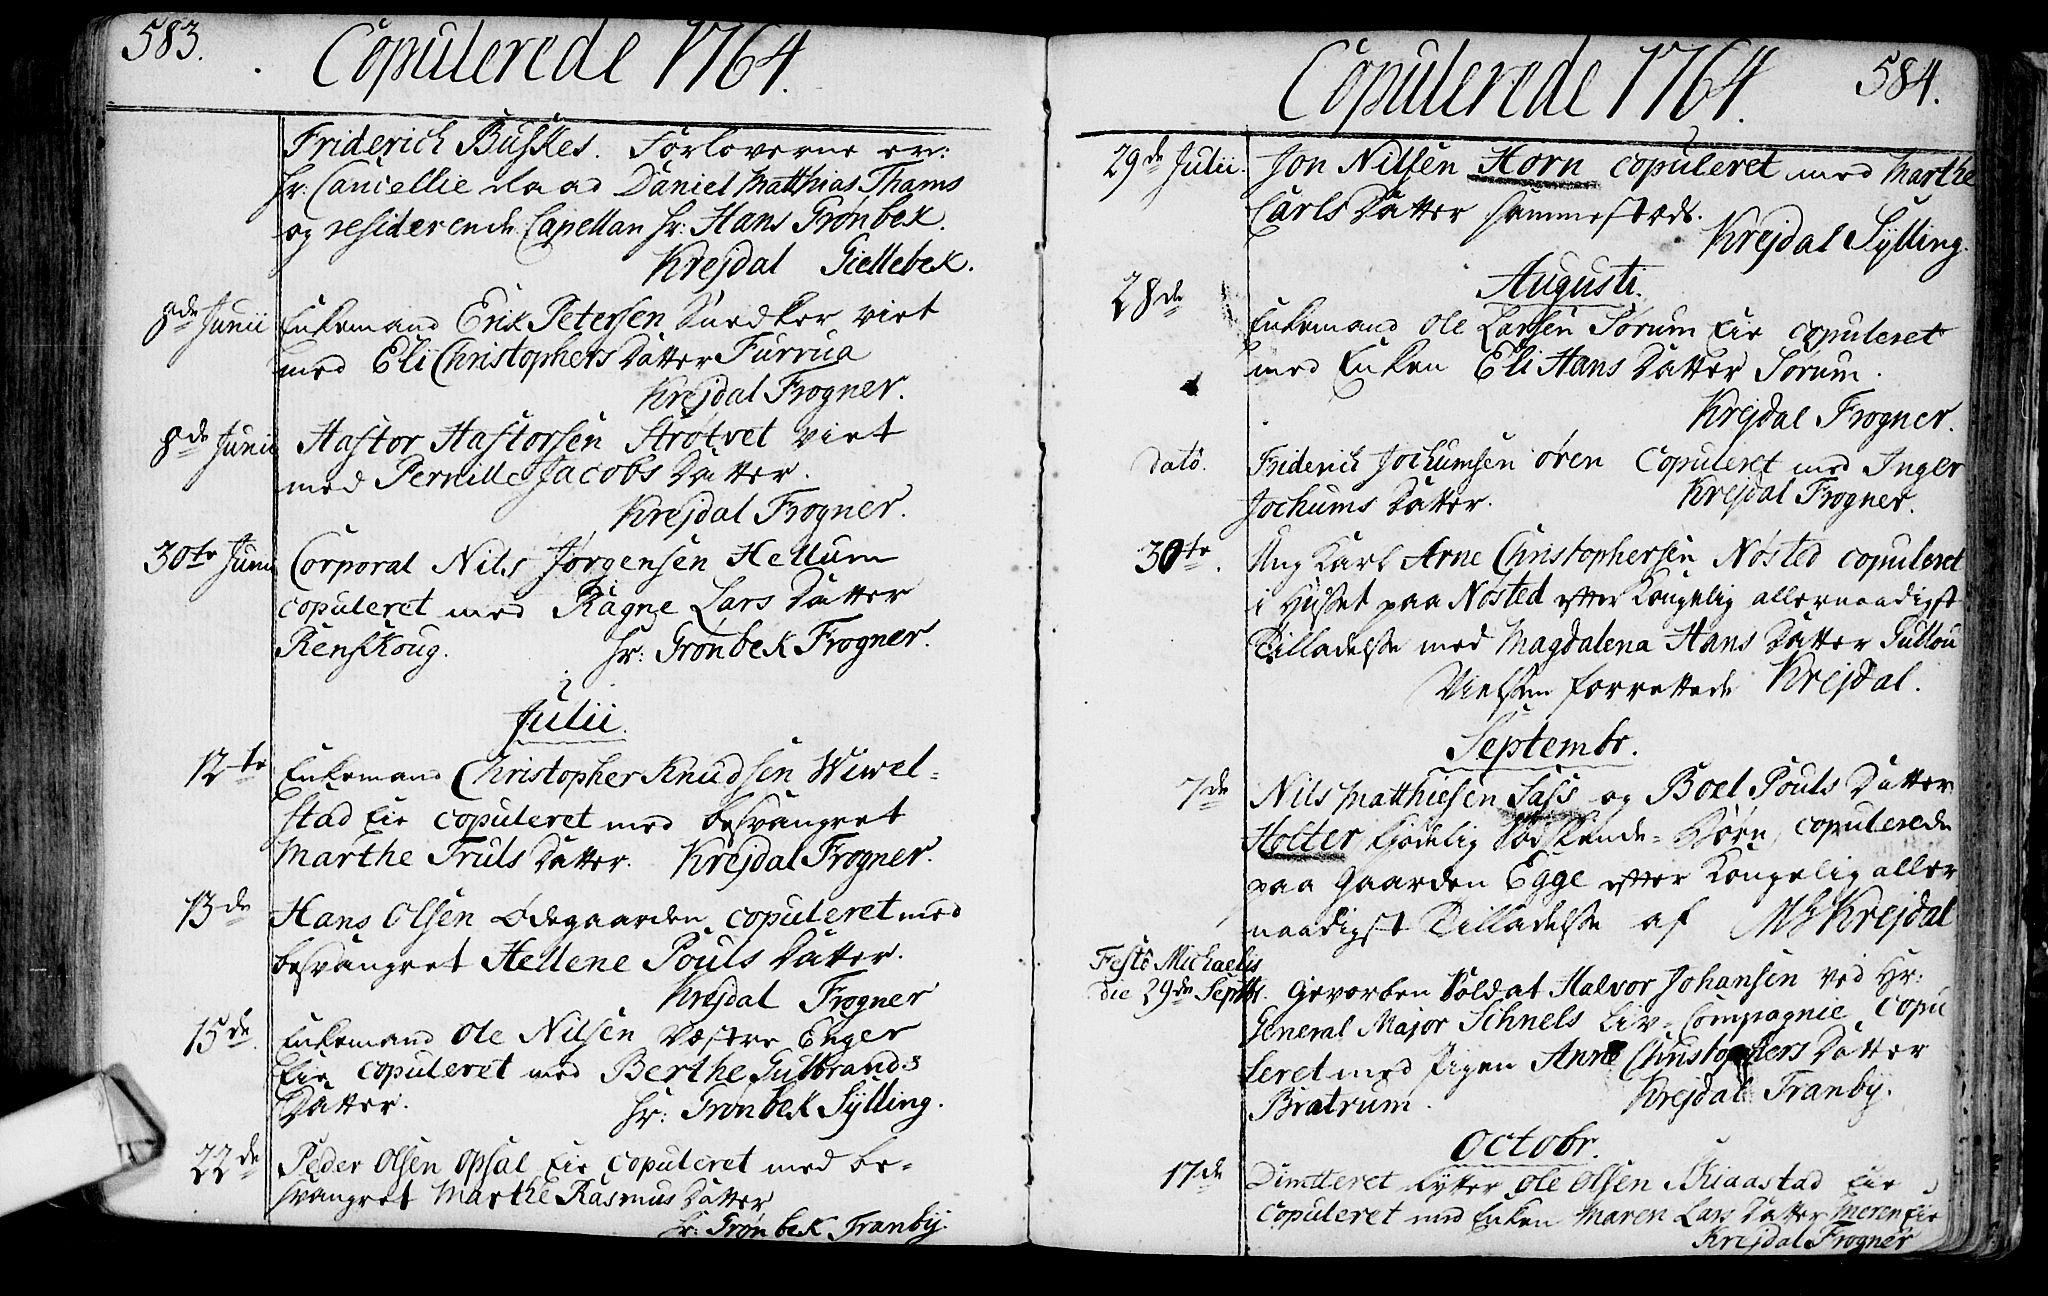 583.
Copulerede 1764.
Friderich Buskes. Forloverne er:
hr: Cancellie Raad Daniel Matthias Thams
og residerende Capellan hr: Hans Grønbek.
Krejdal Giellebek.
8de Junii Enkemand Erik Petersen Snedker viet
med Eli Christophers Datter Furrua
Krejdal Frogner.
8de Junii Hastor Hastorsen Strøtvet viet
med Pernille Jacobs Datter.
Krejdal Frogner.
30te Junii Corporal Nils Jørgensen Hellum
copuleret med Ragne Lars Datter
Renskoug. hr: Grønbek Frogner.
Julii.
12te Enkemand Christopher Knudsen Wiwel-
stad Eie copuleret med besvangret
Marthe Truls Datter. Krejdal Frogner.
13de Hans Olsen Ødegaarden copuleret med
besvangret Hellene Pouls Datter.
Krejdal Frogner
15de. Enkemand Ole Nilsen Væstre Enger
Eie copuleret med Berthe Gulbrands
Datter. hr: Grønbek Sylling.
22de Peder Olsen Opsal Eie copuleret med be-
svangret Marthe Rasmus Datter
hr: Grønbek Franby.
Copulerede 1764. 584.
29de Julii. Jon Nilsen Horn copuleret med Marthe
Carls Datter sammestæds.
Krejdal Sylling.
Augusti.
28de Enkemand Ole Larsen Sørum Eie copuleret
med Enken Eli Hans Datter Sørum.
Krejdal Frogner.
Dato. Friderich Jochumsen Øren copuleret med Inger
Jochums Datter. Krejdal Frogner.
30te. Ung Karl Arne Christophersen Nøsted copuleret
i Huset paa Nøsted efter Kongelig allernaadigst
Tilladelse med Magdalena Hans Datter Gullou
Vielsen forrettede Krejdal.
Septembr.
7de Nils Matthiesen Sass og Boel Pouls Datter
Holter kiødelig Sødskende-Børn, copulerede
paa Gaarden Egge efter Kongelig aller
naadigst Tilladelse af MS Krejdal
Festo Michaelis
die 29de Septbr. Gevorben Soldat Halvor Johansen ved Hr:
General Major Schnels Liv-Compagnie copu
leret med Pigen Anne Christophers Datter
Bratrum. Krejdal Franby.
Octobr.
17de Dimitteret Rytter Ole Olsen Eie
copuleret med Enken Maren Lars Datter Meren Eie
Krejdal Frogner